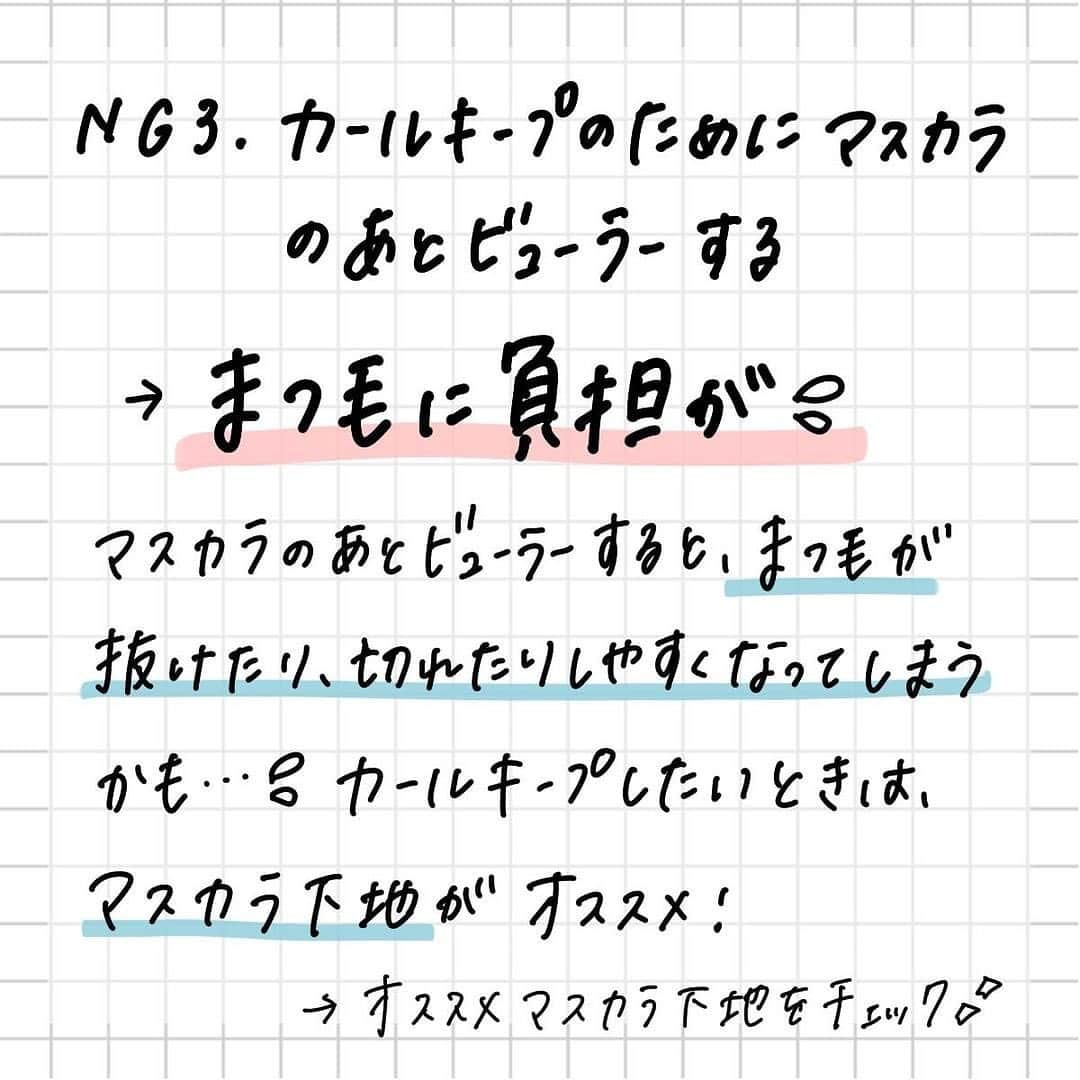 NG3. カールキープのためにマスカラ
のあとビューラーする
→ まつ毛に負担が
マスカラのあとビューラーすると、まつ毛が
抜けたり、切れたりしやすくなってしまう
かも… カールキープしたいときは、
マスカラ下地がオススメ!
→ オススメマスカラ下地をチェック